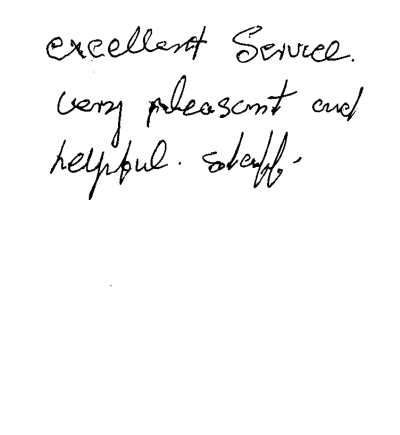 excellent Service.
very pleasant and
helpful. staff.